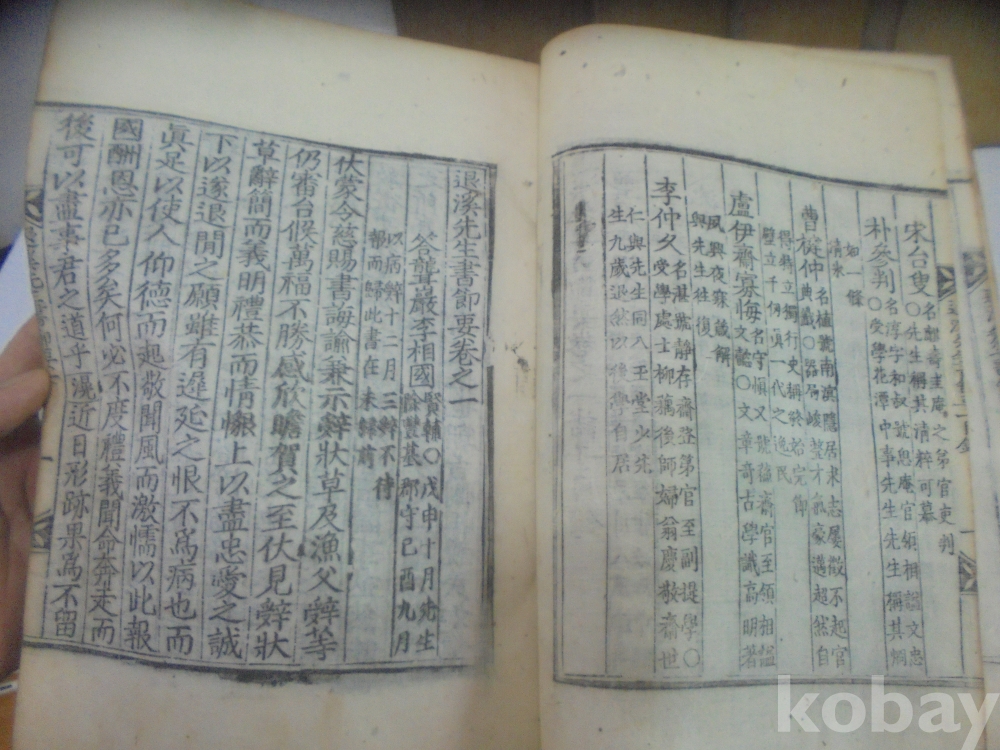 宋台叟
名麒壽圭庵之弟官吏判
○先生稱其清粹可慕
朴參判
名淳字和叔號思庵官領相諡文忠
○受學花潭中事先生先生稱其烱
如一條
清氷
曹楗仲
名植
隱居
不起官
得特立獨行史稱
壁立千仞真一代之逸民
盧伊齋寡悔
名守愼又號
齋官至領相諡
文懿○文章奇古學識高明著
夙興夜寐箴解
與先生往復
李仲久
名湛號靜存齋登第官至副提學○
受學處士柳藕後師婦翁慶敬齋世
仁與先生同入玉堂少先
生九歲
退溪先生書節要卷之一
答聾巖李相國
賢輔○戊申十月先生
除豐基郡守己酉九月
以病辭十二月三辭不待
報而歸此書在未歸前
伏蒙令慈賜書誨諭兼示辭狀草及漁父辭等
仍審台候萬福不勝感欣瞻賀之至伏見辭狀
草辭簡而義明禮恭而情懇上以盡忠愛之誠
下以遂退閒之願雖有遲延之恨不爲病也而
眞足以使人仰德而起敬聞風而激懦以此報
國酬恩亦已多矣何必不度禮義聞命奔走而
後可以盡事君之道乎滉近日形跡果爲不留
kobay